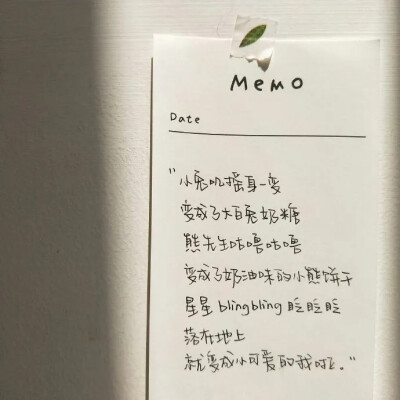 Memo
Date
"小兔叽摇身一变
变成了大白兔奶糖
熊先生咕噜咕噜
变成了奶油味的小熊饼干
星星blingbling眨眨眨
落在地上
就变成小可爱的我啦。"